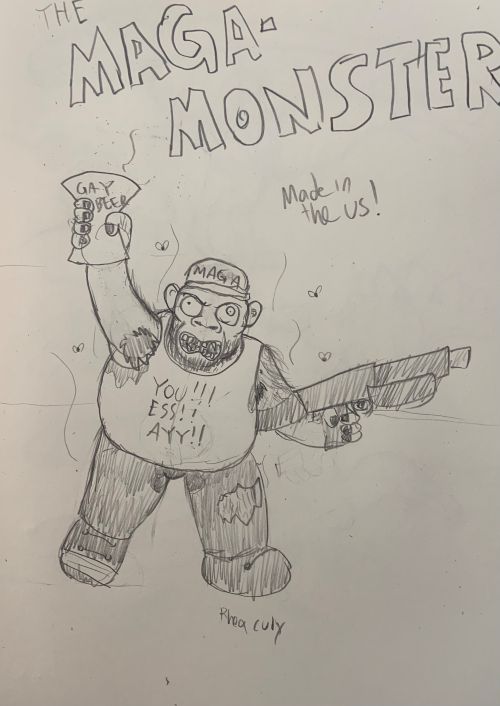 THE
MAGA-
MONSTER
Made in
the US!
GAY
BEER
MAGA
YOU!!!
ESS!!
AYY!!
Rhea Culy